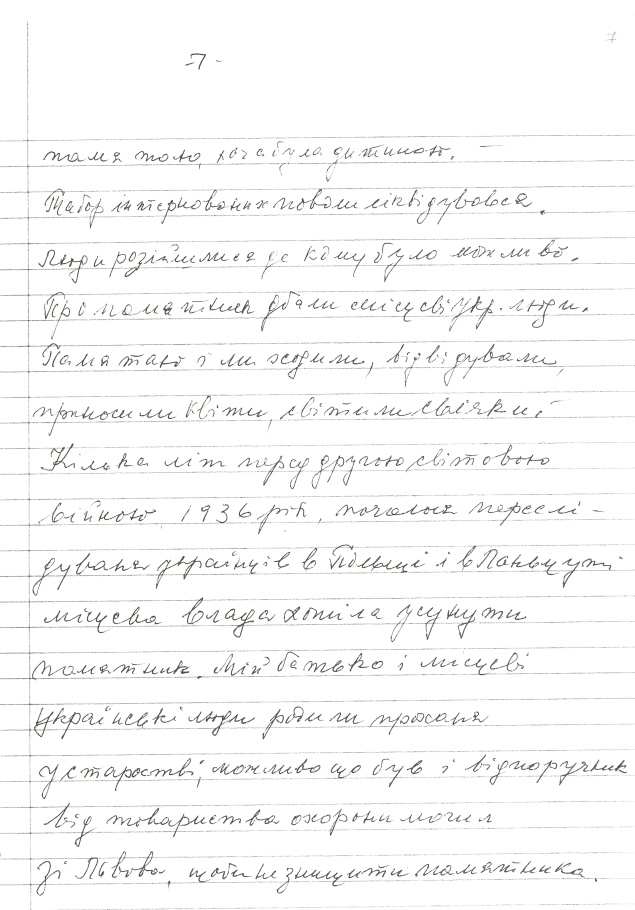 7
-7-
памятаю, хоча була дитиною.
Табор інтернованих поволи ліквідувався.
Люди розійшлися де кому було можливо.
Про памятник дбали місцеві укр. люди.
Памятаю і ми ходили, відвідували,
приносили квіти, світили свічки.
Кілька літ перед другою світовою
війною 1936 рік, почалося переслі-
дуваня українців в Польщі і в Ланьцуті
місцева влада хотіла усунути
памятник. Мій батько і місцеві
Українські люди робили проханя
у старостві, можливо що був і відпоручник
від товариства охорони могил
зі Львова, щоби не знищити памятника.